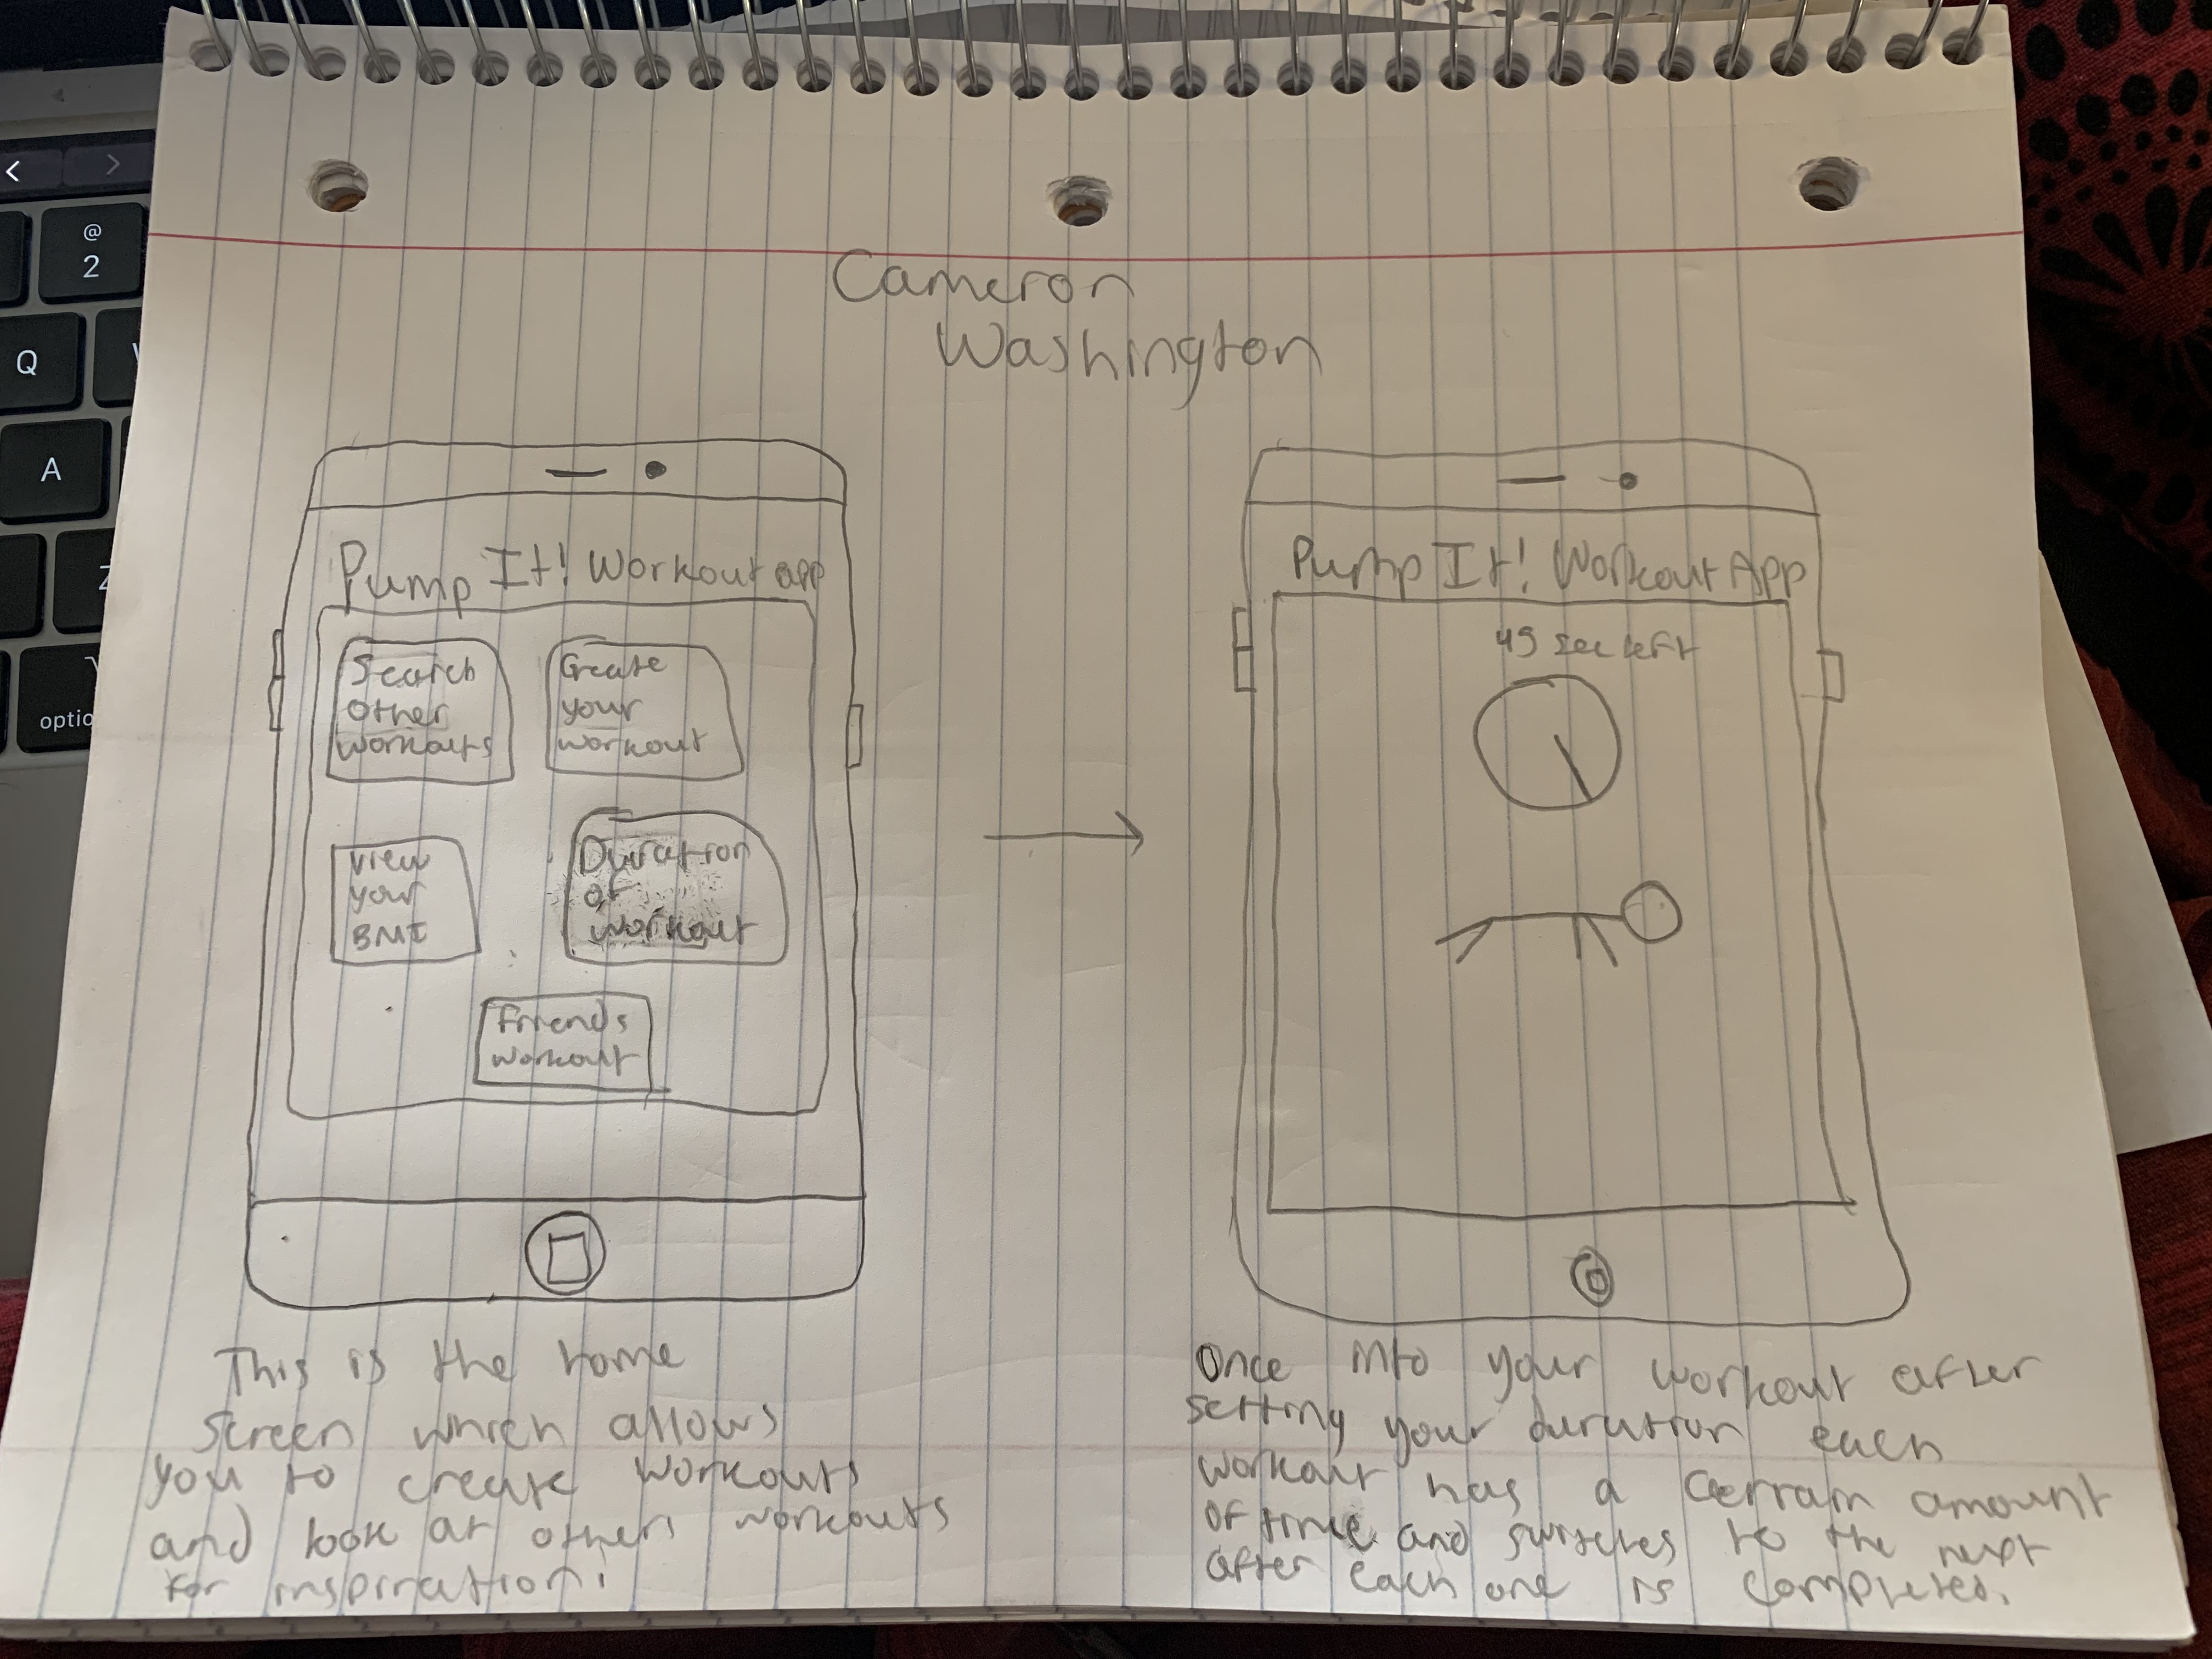 @
2
Q
A
Z
optio
Cameron
Washington
Pump It! Workout app
Search
Other
workouts
Create
your
workout
View
your
BMI
Duration
of
workout
Friends
workout
This is the home
screen which allows
you to create workouts
and look at others workouts
for inspiration.
Pump It! Workout App
45 sec left
Once into your workout after
setting your duration each
workout has a certain amount
of time and switches to the next
after each one is completed.